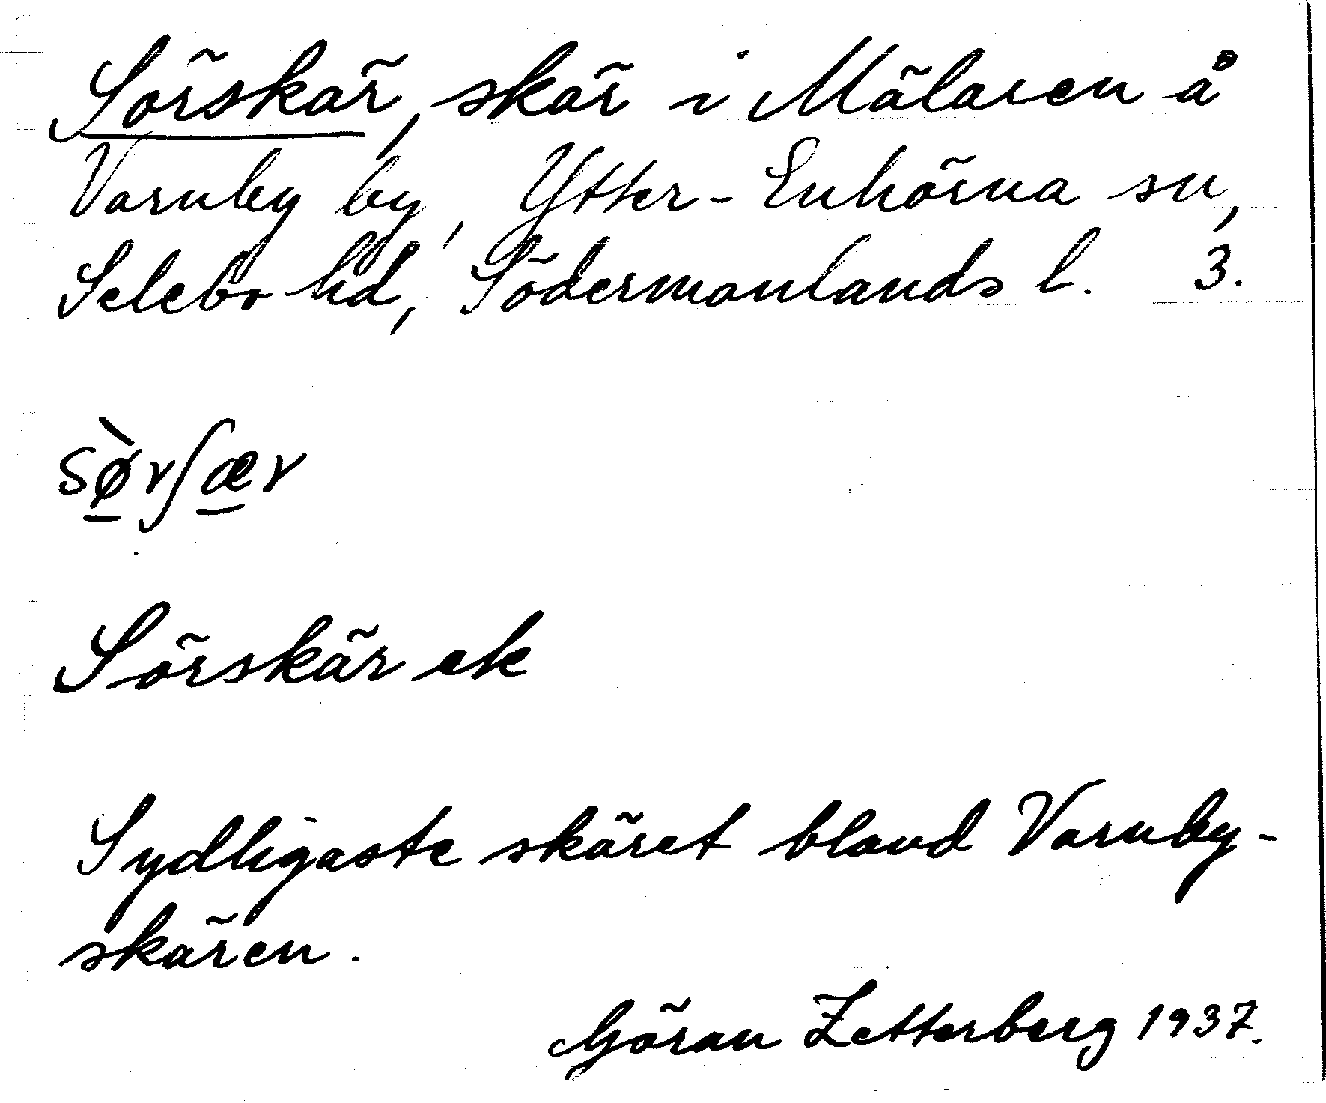 Sörskär, skär i Mälaren å
Varnby by, Ytter-Enhörna sn,
Selebo hd, Södermanlands l. 3.
sø̱̀rʃæ̱r
Sörskär ek
Sydligaste skäret bland Varnby-
skären.
Göran Zetterberg 1937.